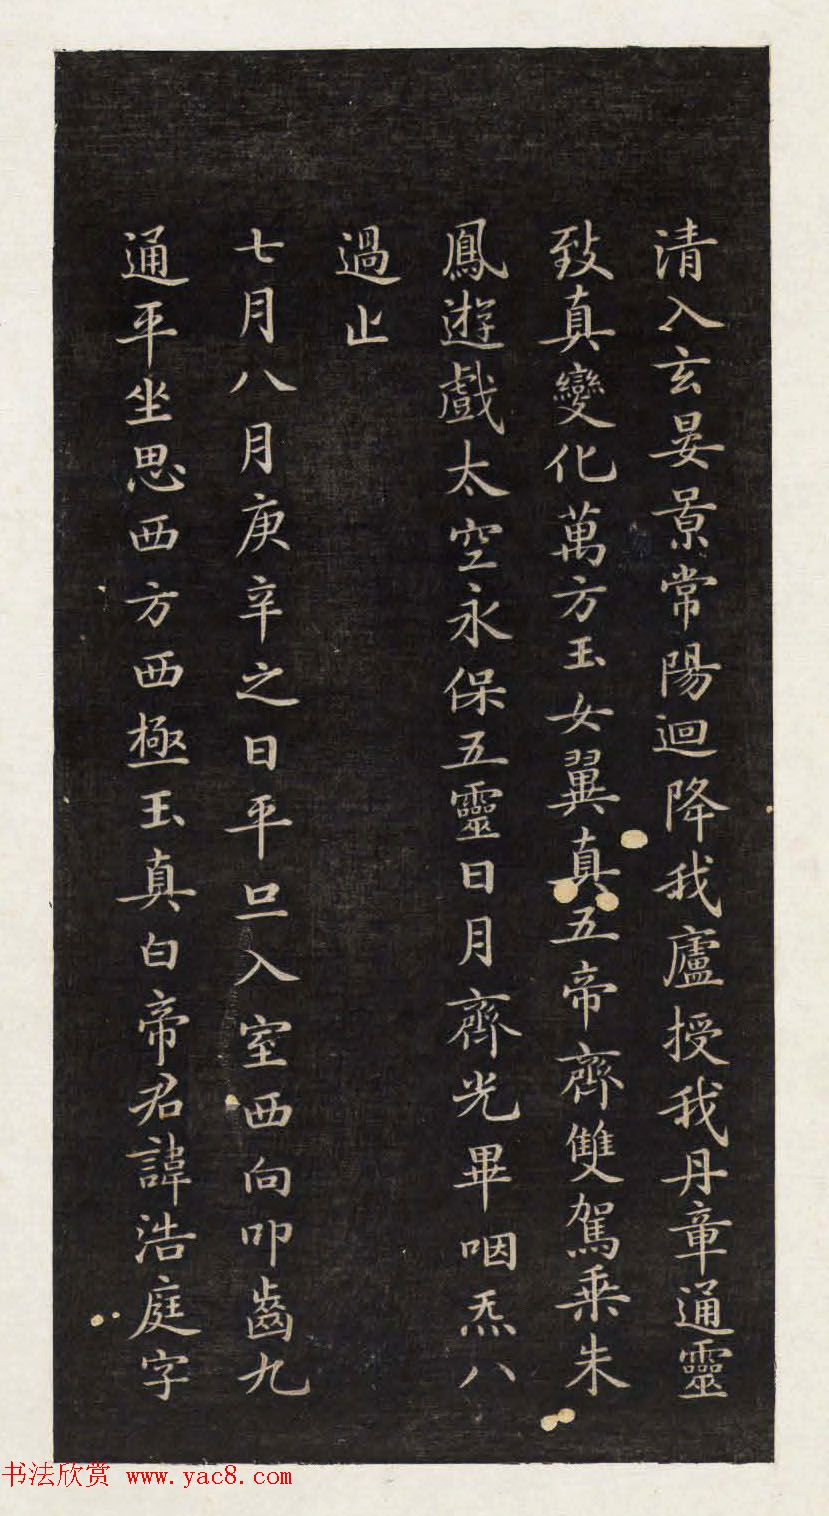 清入玄晏景常陽迴降我廬授我丹章通靈
致真變化萬方玉女翼真五帝齊雙駕乘朱
鳳遊戲太空永保五靈日月齊光畢咽炁八
過止
七月八月庚辛之日平旦入室西向叩齒九
通平坐思西方西極玉真白帝君諱浩庭字
书法欣赏 www.yac8.com